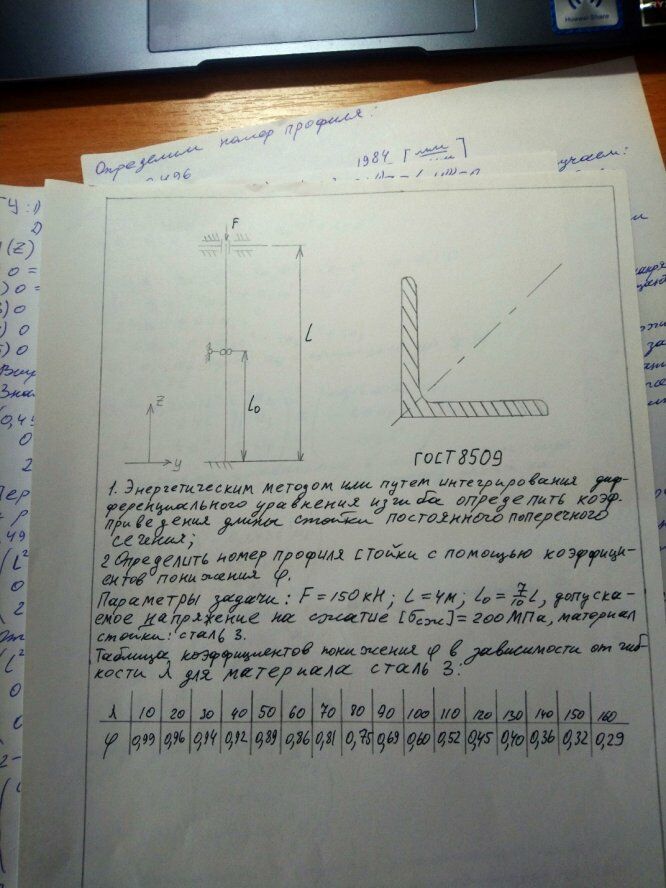 Huawei Share
Определим номер профиля:
1984
F
L
l₀
z
y
ГОСТ 8509
1. Энергетическим методом или путем интегрирования диф-
ференциального уравнения изгиба определить коэф.
приведения длины стойки постоянного поперечного
сечения;
2 Определить номер профиля стойки с помощью коэффици-
ентов понижения φ.
Параметры задачи: F = 150 кН; L = 4м; l₀ = 7/10 L, допуска-
емое напряжение на сжатие [σсж] = 200 МПа, материал
стойки: сталь 3.
Таблица коэффициентов понижения φ в зависимости от гиб-
кости λ для материала сталь 3:
λ 10 20 30 40 50 60 70 80 90 100 110 120 130 140 150 160
φ 0,99 0,96 0,94 0,92 0,89 0,86 0,81 0,75 0,69 0,60 0,52 0,45 0,40 0,36 0,32 0,29